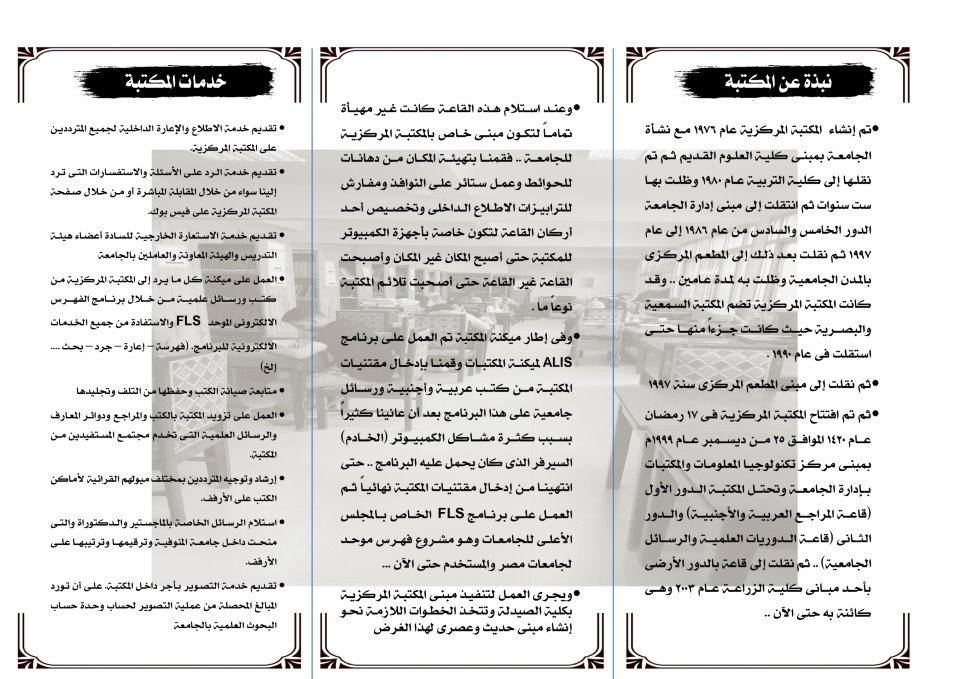 نبذة عن المكتبة
●تم إنشاء المكتبة المركزية عام ١٩٧٦ مع نشأة
الجامعة بمبنى كلية العلوم القديم ثم تم
نقلها إلى كلية التربية عام ١٩٨٠ وظلت بها
ست سنوات ثم انتقلت إلى مبنى إدارة الجامعة
الدور الخامس والسادس من عام ١٩٨٦ إلى عام
١٩٩٧ ثم نقلت بعد ذلك إلى المطعم المركزى
بالمدن الجامعية وظلت به لمدة عامين .. وقد
كانت المكتبة المركزية تضم المكتبة السمعية
والبصرية حيث كانت جزءاً منها حتى
استقلت فى عام ١٩٩٠ .
●ثم نقلت إلى مبنى المطعم المركزى سنة ١٩٩٧
●ثم تم افتتاح المكتبة المركزية فى ١٧ رمضان
عام ١٤٢٠ الموافق ٢٥ من ديسمبر عام ١٩٩٩م
بمبنى مركز تكنولوجيا المعلومات والمكتبات
بإدارة الجامعة وتحتل المكتبة الدور الأول
(قاعة المراجع العربية والأجنبية) والدور
الثانى (قاعة الدوريات العلمية والرسائل
الجامعية) .. ثم نقلت إلى قاعة بالدور الأرضى
بأحد مبانى كلية الزراعة عام ٢٠٠٣ وهى
كائنة به حتى الآن ..
●وعند استلام هذه القاعة كانت غير مهيأة
تماماً لتكون مبنى خاص بالمكتبة المركزية
للجامعة .. فقمنا بتهيئة المكان من دهانات
للحوائط وعمل ستائر على النوافذ ومفارش
للترابيزات الاطلاع الداخلى وتخصيص أحد
أركان القاعة لتكون خاصة بأجهزة الكمبيوتر
للمكتبة حتى أصبح المكان غير المكان وأصبحت
القاعة غير القاعة حتى أصبحت تلائم المكتبة
نوعاً ما .
●وفى إطار ميكنة المكتبة تم العمل على برنامج
ALIS لميكنة المكتبات وقمنا بإدخال مقتنيات
المكتبة من كتب عربية وأجنبية ورسائل
جامعية على هذا البرنامج بعد أن عانينا كثيراً
بسبب كثرة مشاكل الكمبيوتر (الخادم)
السيرفر الذى كان يحمل عليه البرنامج .. حتى
انتهينا من إدخال مقتنيات المكتبة نهائياً ثم
العمل على برنامج FLS الخاص بالمجلس
الأعلى للجامعات وهو مشروع فهرس موحد
لجامعات مصر والمستخدم حتى الآن ...
●ويجرى العمل لتنفيذ مبنى المكتبة المركزية
بكلية الصيدلة وتتخذ الخطوات اللازمة نحو
إنشاء مبنى حديث وعصرى لهذا الغرض
خدمات المكتبة
● تقديم خدمة الاطلاع والإعارة الداخلية لجميع المترددين
على المكتبة المركزية.
● تقديم خدمة الرد على الأسئلة والاستفسارات التى ترد
إلينا سواء من خلال المقابلة المباشرة أو من خلال صفحة
المكتبة المركزية على فيس بوك.
● تقديم خدمة الاستعارة الخارجية للسادة أعضاء هيئة
التدريس والهيئة المعاونة والعاملين بالجامعة
● العمل على ميكنة كل ما يرد إلى المكتبة المركزية من
كتب ورسائل علمية من خلال برنامج الفهرس
الالكترونى الموحد FLS والاستفادة من جميع الخدمات
الالكترونية للبرنامج. (فهرسة – إعارة – جرد – بحث ....
إلخ)
● متابعة صيانة الكتب وحفظها من التلف وتجليدها
● العمل على تزويد المكتبة بالكتب والمراجع ودوائر المعارف
والرسائل العلمية التى تخدم مجتمع المستفيدين من
المكتبة.
● إرشاد وتوجيه المترددين بمختلف ميولهم القرائية لأماكن
الكتب على الأرفف.
● استلام الرسائل الخاصة بالماجستير والدكتوراة والتى
منحت داخل جامعة المنوفية وترقيمها وترتيبها على
الأرفف.
● تقديم خدمة التصوير بأجر داخل المكتبة. على أن تورد
المبالغ المحصلة من عملية التصوير لحساب وحدة حساب
البحوث العلمية بالجامعة